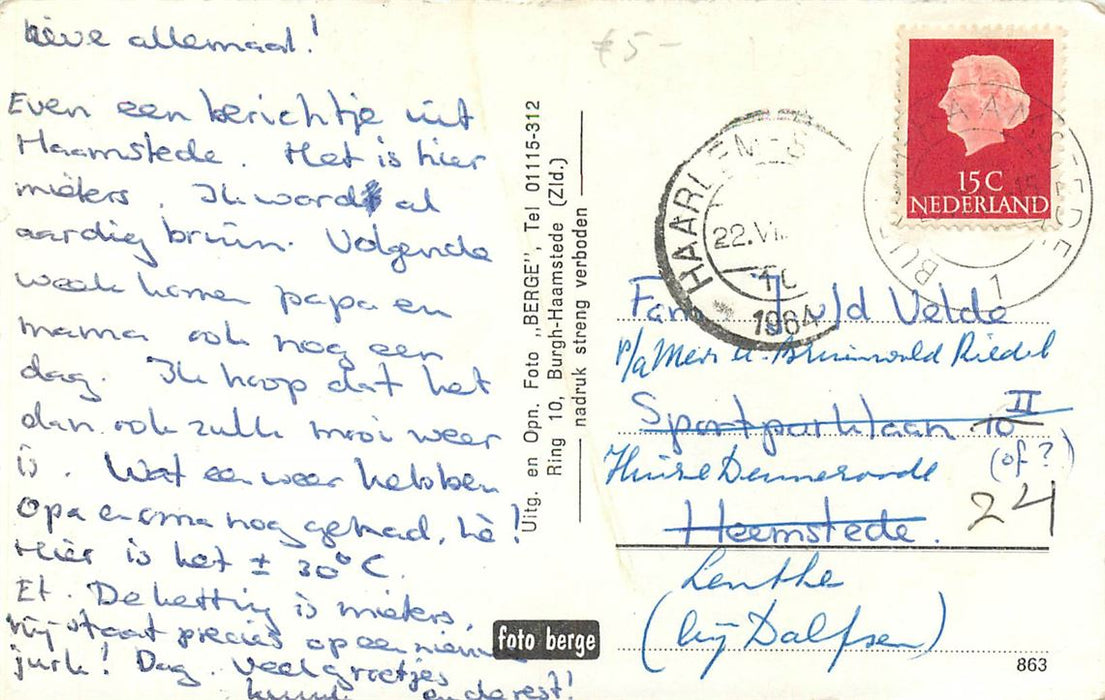 Lieve allemaal!
Even een berichtje uit
Haamstede. Het is hier
mieters. Ik word al
aardig bruin. Volgende
week komen papa en
mama ook nog een
dag. Ik hoop dat het
dan ook zulk mooi weer
is. Wat een weer hebben
Opa en oma nog gehad, hè!
Hier is het ± 30° C.
Et. De ketting is mieters,
hij staat precies op een nieuwe
jurk! Dag. Veel groetjes
en de rest!
£5-
Uitg. en Opn. Foto „BERGE", Tel 01115-312
Ring 10, Burgh-Haamstede (Zld.)
nadruk streng verboden
foto berge
HAARLEM
22.VI
10
1964
15 C
NEDERLAND
1
Fam. J. v/d Velde
p/a Mevr.
Sportparklaan 10 II
Huize Dennerode (of?)
24
Heemstede.
Lenthe
(bij Dalfsen)
863